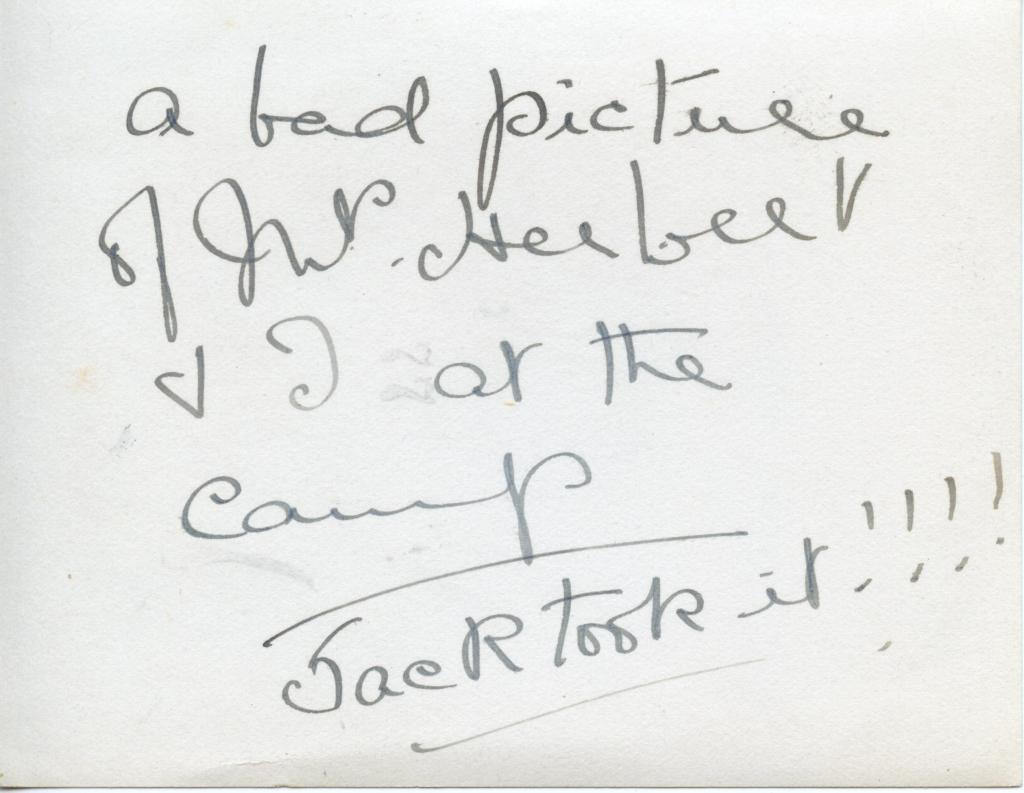 a bad picture
of Mr. Herbert
& I at the
camp
Jack took it!!!!